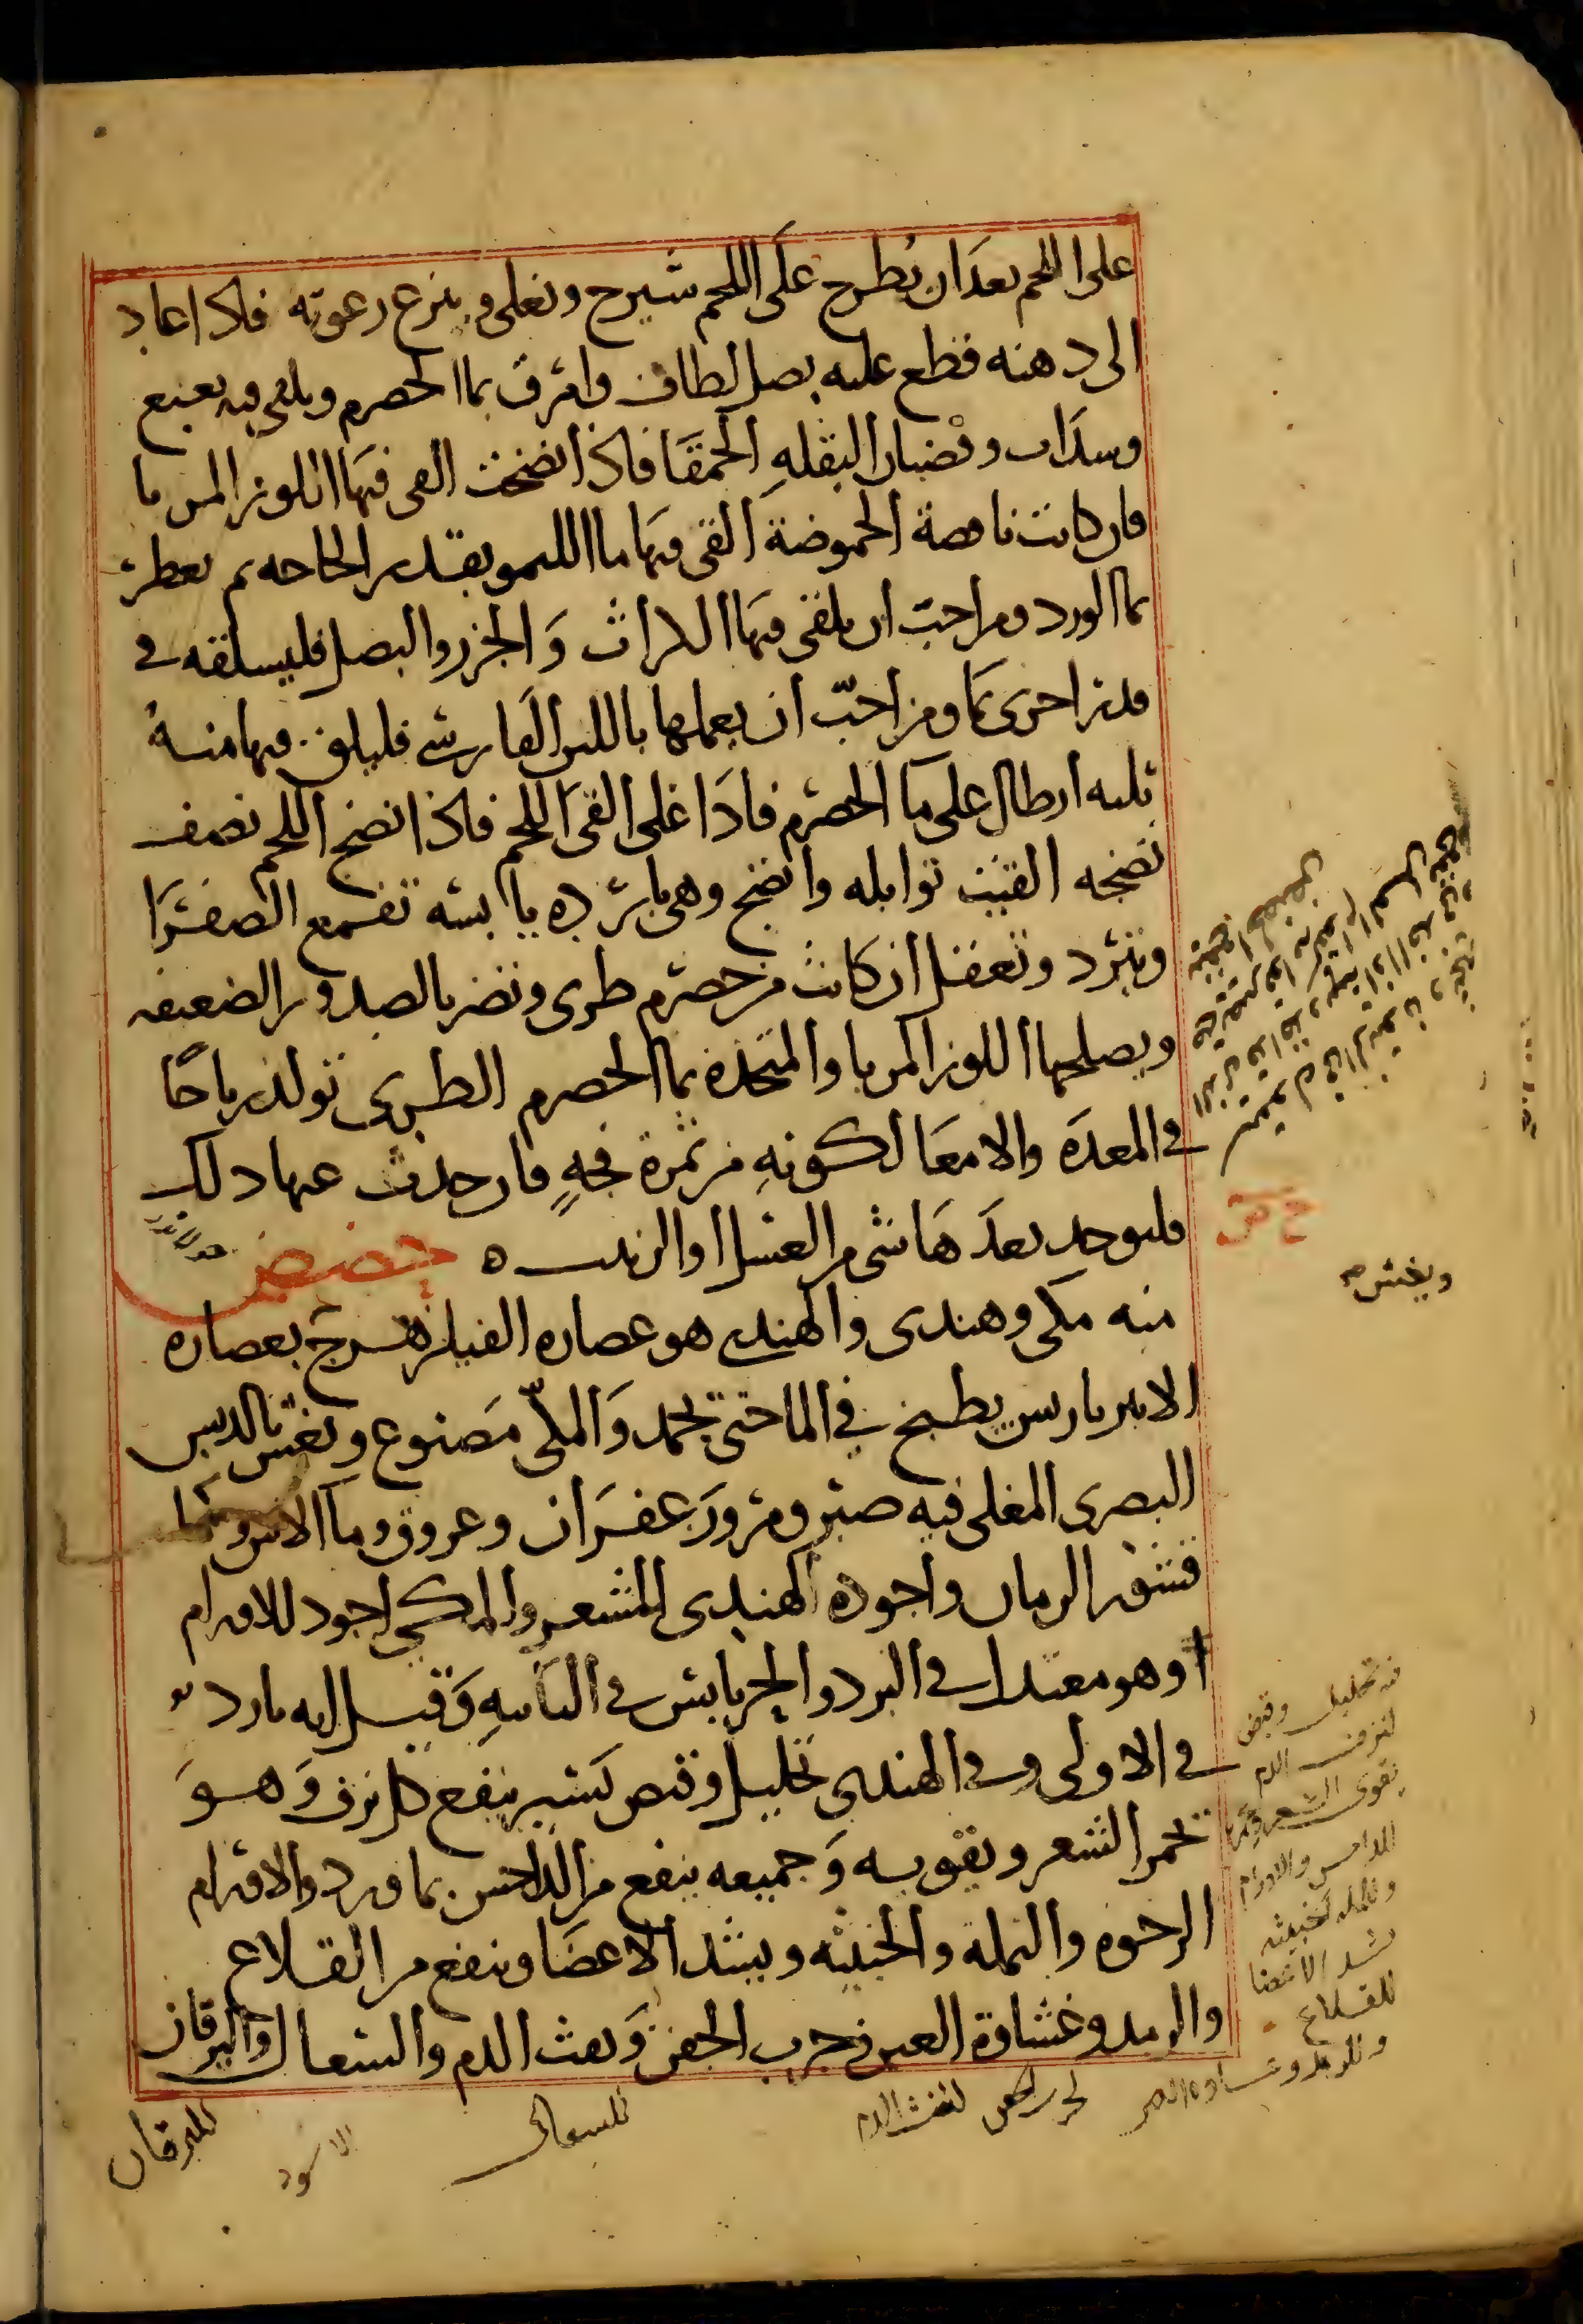 على اللحم بعد ان يطرح على اللحم شيرج ونغلى وينزع رغوته فاذا عاد
الى دهنه قطع عليه بصل لطاف وامرق بما الحصرم ويلقى فيه نعنع
وسداب وقضبان البقله الحمقا فاذا انضجت القى فيها اللوز المربا
فان كانت ناقصة الحموضة القى فيها ما الليمو بقدر الحاجه ثم يعطر
بما الورد ومن احب ان يلقى فيها الكراث والجزر والبصل فليسلقه في
قدر اخرى بما ومن احبّ ان يعملها باللبن الفارسى فليلق فيها منه
ثلثه ارطال على ما الحصرم فاذا غلى القى اللحم فاذا انضج اللحم نصف
نضجه القيت توابله وانضج وهى بارده يابسه تقمع الصفرا
وتبرد وتعقل ان كانت من حصرم طرى وتضر بالصدور الضعيفه
ويصلحها اللوز المربا والمتخذة بما الحصرم الطرى تولد رياحًا
في المعدة والامعا لكونه من ثمرة فجةٍ فان حدث عنها ذلك
فليوخذ بعدها شى من العسل او الزبيب ه حضض
منه مكى وهندى والهندى هو عصاره الفيلزهرج بعصاره
الامير باريس يطبخ في الما حتى يجمد والمكّى مصنوع ويغش بالدبس
البصرى المغلى فيه صبر ومر وزعفران وعروق وما الاس وما
قشور الرمان واجوده الهندى للشعر والمكى اجود للاورام
وهو معتدل في البرد والحر يابس في الثانيه وقيل انه بارد
في الاولى وفى الهندى تحليل وقبض كثير ينفع كل نزف وهو
يحمر الشعر ويقويه وجميعه ينفع من الداحس بما ورد والاورام
الرخوه والنملة والخبيثه ويشد الاعضا وينفع من القلاع
والرمد وغشاوة العين وجرب الجفن ونفث الدم والسعال واليرقان
ح ض
ويغش
فيه تحليل وقبض
لنزف الدم
يقوى الشعر
للداحس والاورام
وللنمله الخبيثه
يشد الاعضا
للقلاع
وللرمد وغشاوه العين
لنفث الدم
للسعال
الاسود
لليرقان